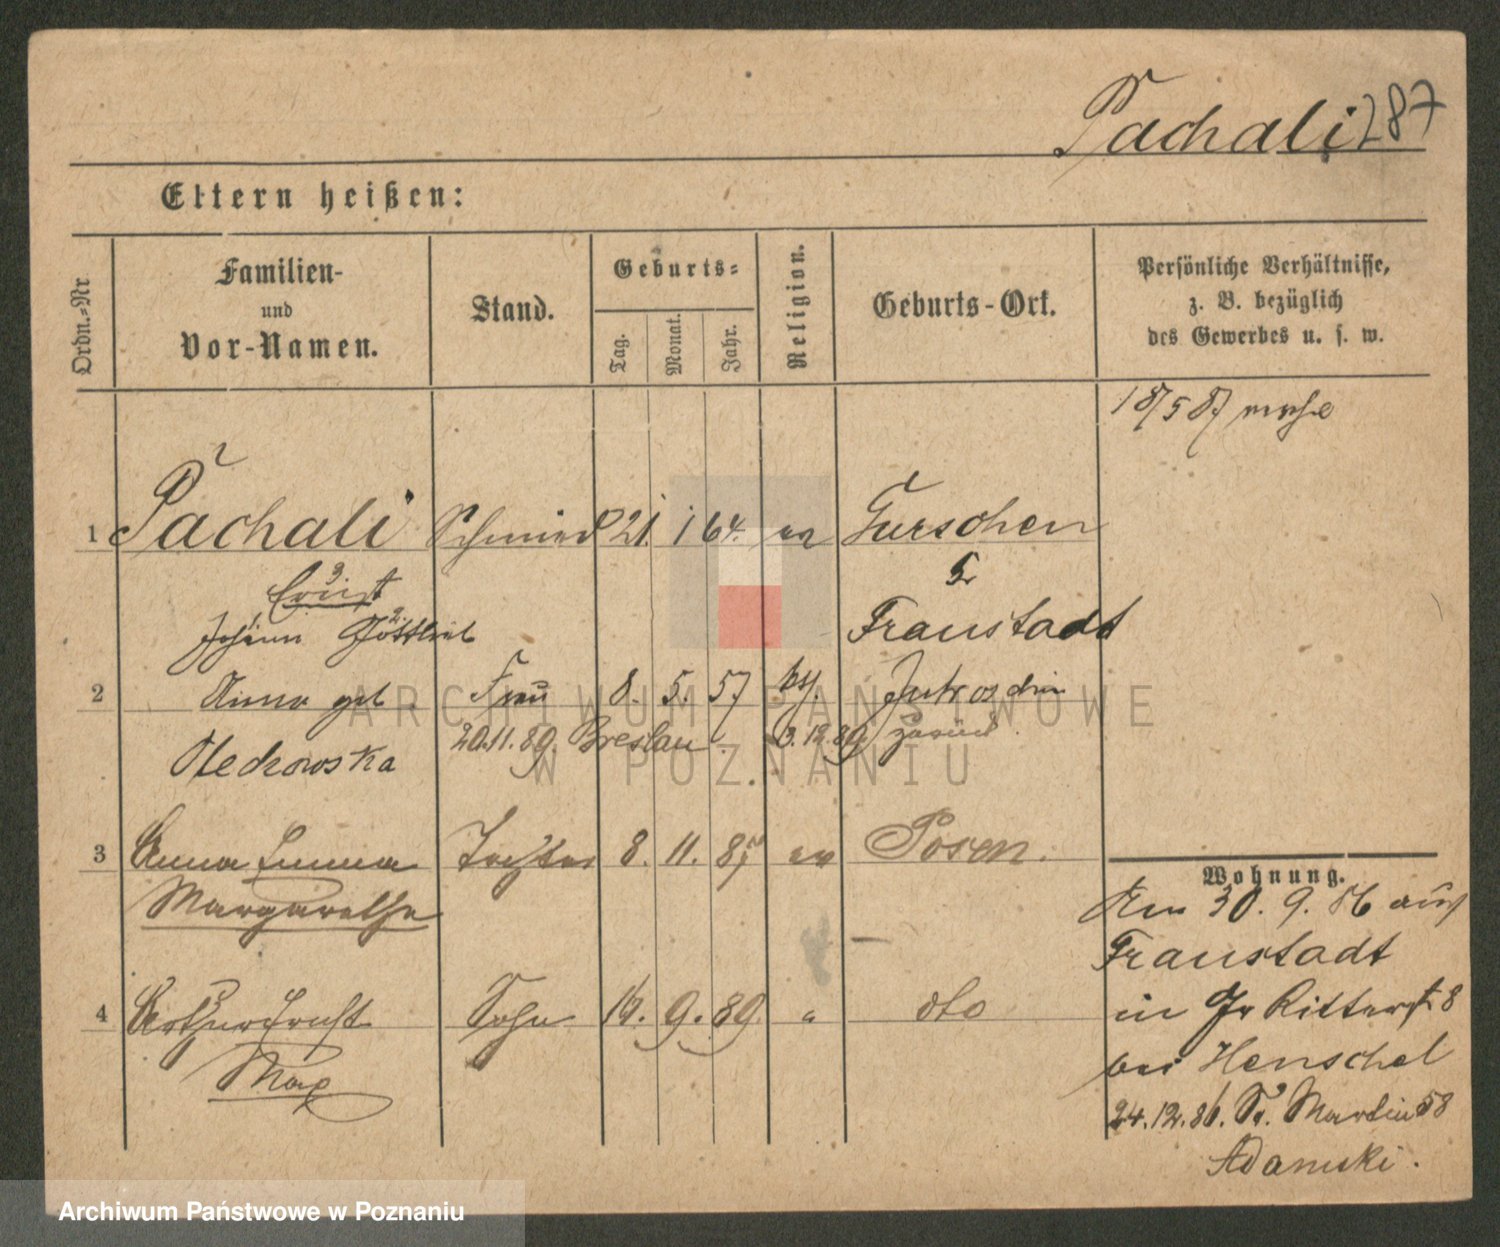 Pachali 287
Eltern heißen:
Ordn.=Nr
Familien-
und
Vor-Namen.
Stand.
Geburts=
Tag.
Monat.
Jahr.
Religion.
Geburts-Ort.
Persönliche Verhältnisse,
z. B. bezüglich
des Gewerbes u. s. w.
18/5 87
1 Pachali Schmied 21. 1 64. ev Turschen
3
Ernst
Fraustadt
1 2
Johann Gottlieb
2 Anna geb Frau 8. 5. 57 kt. Jutroschin
20.11.89. Breslau 3.12.89. zurück
Olechowska
3 Anna Emma Tochter 8. 11. 87 ev Posen.
Margarethe
4 Arthur Ernst Sohn 16. 9. 89. " dto
Max
Wohnung.
Am 30. 9. 86 aus
Fraustadt
in Gr Ritterst 8
bei Henschel
24.12.86. St. Martin 58
Adamski.
ARCHIWUM PAŃSTWOWE
W POZNANIU
Archiwum Państwowe w Poznaniu